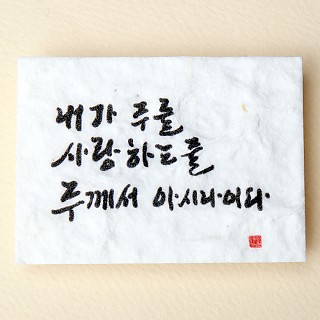 내가 주를
사랑하는 줄
주께서 아시나이다